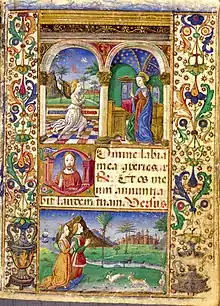 Domine labia
mea aperies
et. Et os me
um annuntia
bit laudem tuam. Versus